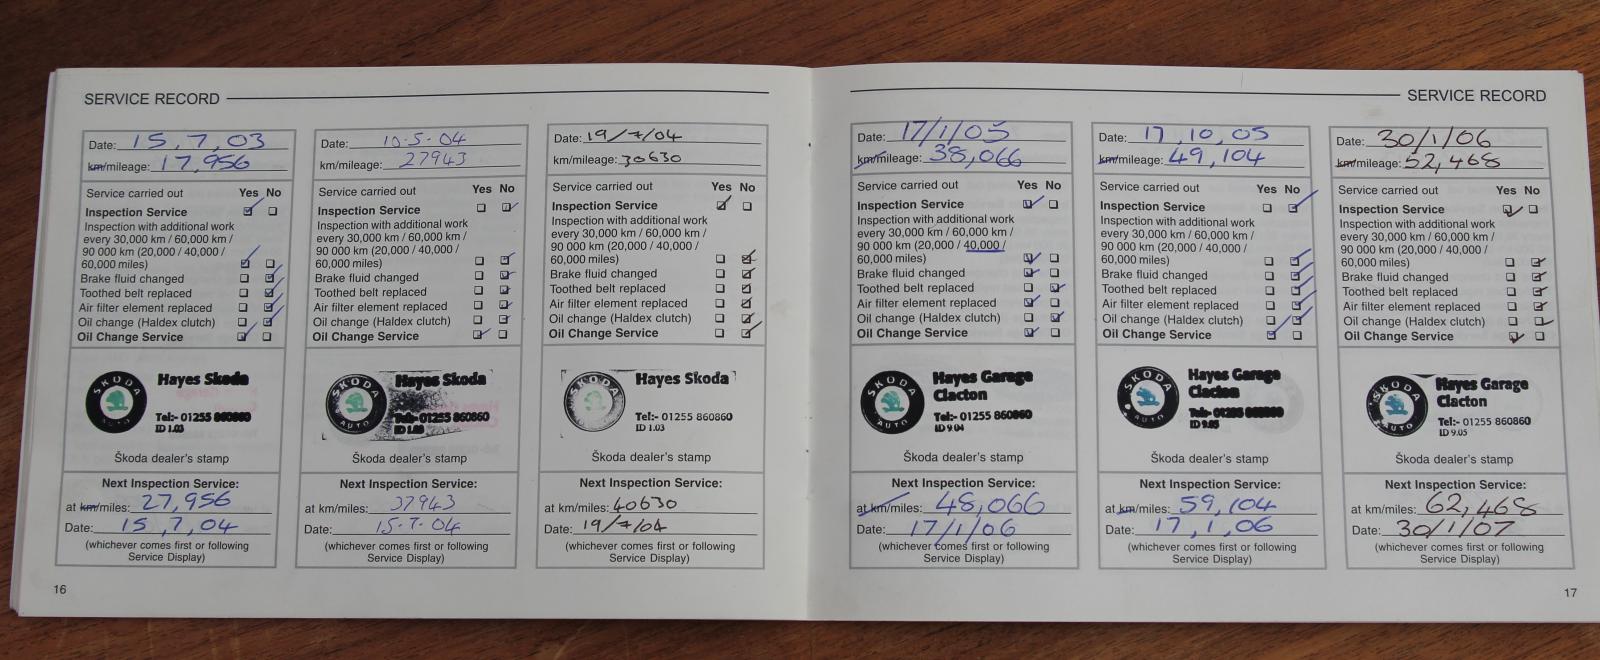 SERVICE RECORD
Date: 15,7,03
km/mileage: 17,956
Service carried out Yes No
Inspection Service
Inspection with additional work
every 30,000 km / 60,000 km /
90 000 km (20,000 / 40,000 /
60,000 miles)
Brake fluid changed
Toothed belt replaced
Air filter element replaced
Oil change (Haldex clutch)
Oil Change Service
SKODA AUTO
Hayes Skoda
Tel:- 01255 860860
ID 1.03
Škoda dealer's stamp
Next Inspection Service:
at km/miles: 27,956
Date: 15,7,04
(whichever comes first or following
Service Display)
16
Date: 10-5-04
km/mileage: 27943
Service carried out Yes No
Inspection Service
Inspection with additional work
every 30,000 km / 60,000 km /
90 000 km (20,000 / 40,000 /
60,000 miles)
Brake fluid changed
Toothed belt replaced
Air filter element replaced
Oil change (Haldex clutch)
Oil Change Service
SKODA AUTO
Hayes Skoda
Tel:- 01255 860860
ID 1.03
Škoda dealer's stamp
Next Inspection Service:
at km/miles: 37943
Date: 15-7-04
(whichever comes first or following
Service Display)
Date: 19/7/04
km/mileage: 30630
Service carried out Yes No
Inspection Service
Inspection with additional work
every 30,000 km / 60,000 km /
90 000 km (20,000 / 40,000 /
60,000 miles)
Brake fluid changed
Toothed belt replaced
Air filter element replaced
Oil change (Haldex clutch)
Oil Change Service
SKODA AUTO
Hayes Skoda
Tel:- 01255 860860
ID 1.03
Škoda dealer's stamp
Next Inspection Service:
at km/miles: 40630
Date: 19/7/04
(whichever comes first or following
Service Display)
SERVICE RECORD
Date: 17/1/05
km/mileage: 38,066
Service carried out Yes No
Inspection Service
Inspection with additional work
every 30,000 km / 60,000 km /
90 000 km (20,000 / 40,000 /
60,000 miles)
Brake fluid changed
Toothed belt replaced
Air filter element replaced
Oil change (Haldex clutch)
Oil Change Service
SKODA AUTO
Hayes Garage
Clacton
Tel:- 01255 860860
ID 9 04
Škoda dealer's stamp
Next Inspection Service:
at km/miles: 48,066
Date: 17/1/06
(whichever comes first or following
Service Display)
Date: 17,10,05
km/mileage: 49,104
Service carried out Yes No
Inspection Service
Inspection with additional work
every 30,000 km / 60,000 km /
90 000 km (20,000 / 40,000 /
60,000 miles)
Brake fluid changed
Toothed belt replaced
Air filter element replaced
Oil change (Haldex clutch)
Oil Change Service
SKODA AUTO
Hayes Garage
Clacton
Tel:- 01255 860860
ID 9.05
Škoda dealer's stamp
Next Inspection Service:
at km/miles: 59,104
Date: 17,1,06
(whichever comes first or following
Service Display)
Date: 30/1/06
km/mileage: 52,468
Service carried out Yes No
Inspection Service
Inspection with additional work
every 30,000 km / 60,000 km /
90 000 km (20,000 / 40,000 /
60,000 miles)
Brake fluid changed
Toothed belt replaced
Air filter element replaced
Oil change (Haldex clutch)
Oil Change Service
SKODA AUTO
Hayes Garage
Clacton
Tel:- 01255 860860
ID 9.05
Škoda dealer's stamp
Next Inspection Service:
at km/miles: 62,468
Date: 30/1/07
(whichever comes first or following
Service Display)
17